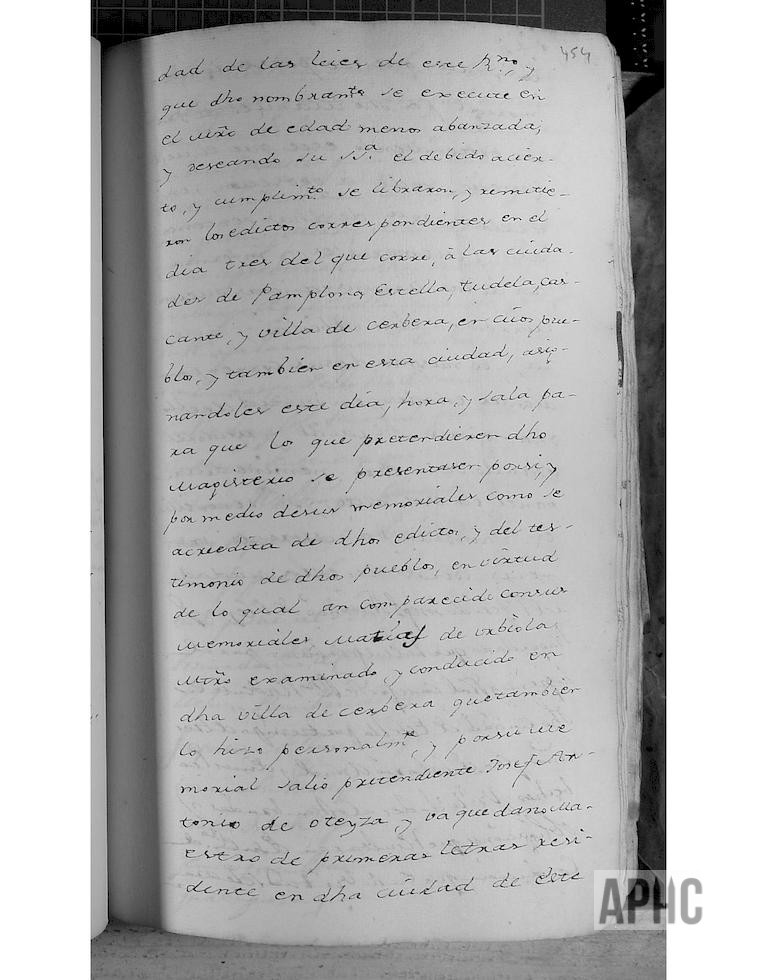 454
dad de las leies de este Rno, y
que dho nombramto se execute en
el Mro de edad menos abanzada;
y deseando su Sa. el debido acier-
to, y cumplimto se libraron, y remitie-
ron los edictos correspondientes en el
dia tres del que corre, à las ciuda-
des de Pamplona, Estella, tudela, cas-
cante, y villa de cerbera, en cuios pue-
blos, y tambien en esta ciudad, asig-
nandoles este dia, hora, y sala pa-
ra que los que pretendieren dho
Magisterio se presentasen porsi, y
por medio desus memoriales como se
acredita de dhos edictos, y del tes-
timonio de dhos pueblos, en virtud
de lo qual an comparecido consus
Memoriales Matias de vrbiola
Mro examinado, y conducido en
dha villa de cerbera quetambien
lo hizo personalmte, y porsu me
morial salio pretendiente Josef An-
tonio de oteyza y vaquedano Ma-
estro de primeras letras resi-
dente en dha ciudad de Este
APHC